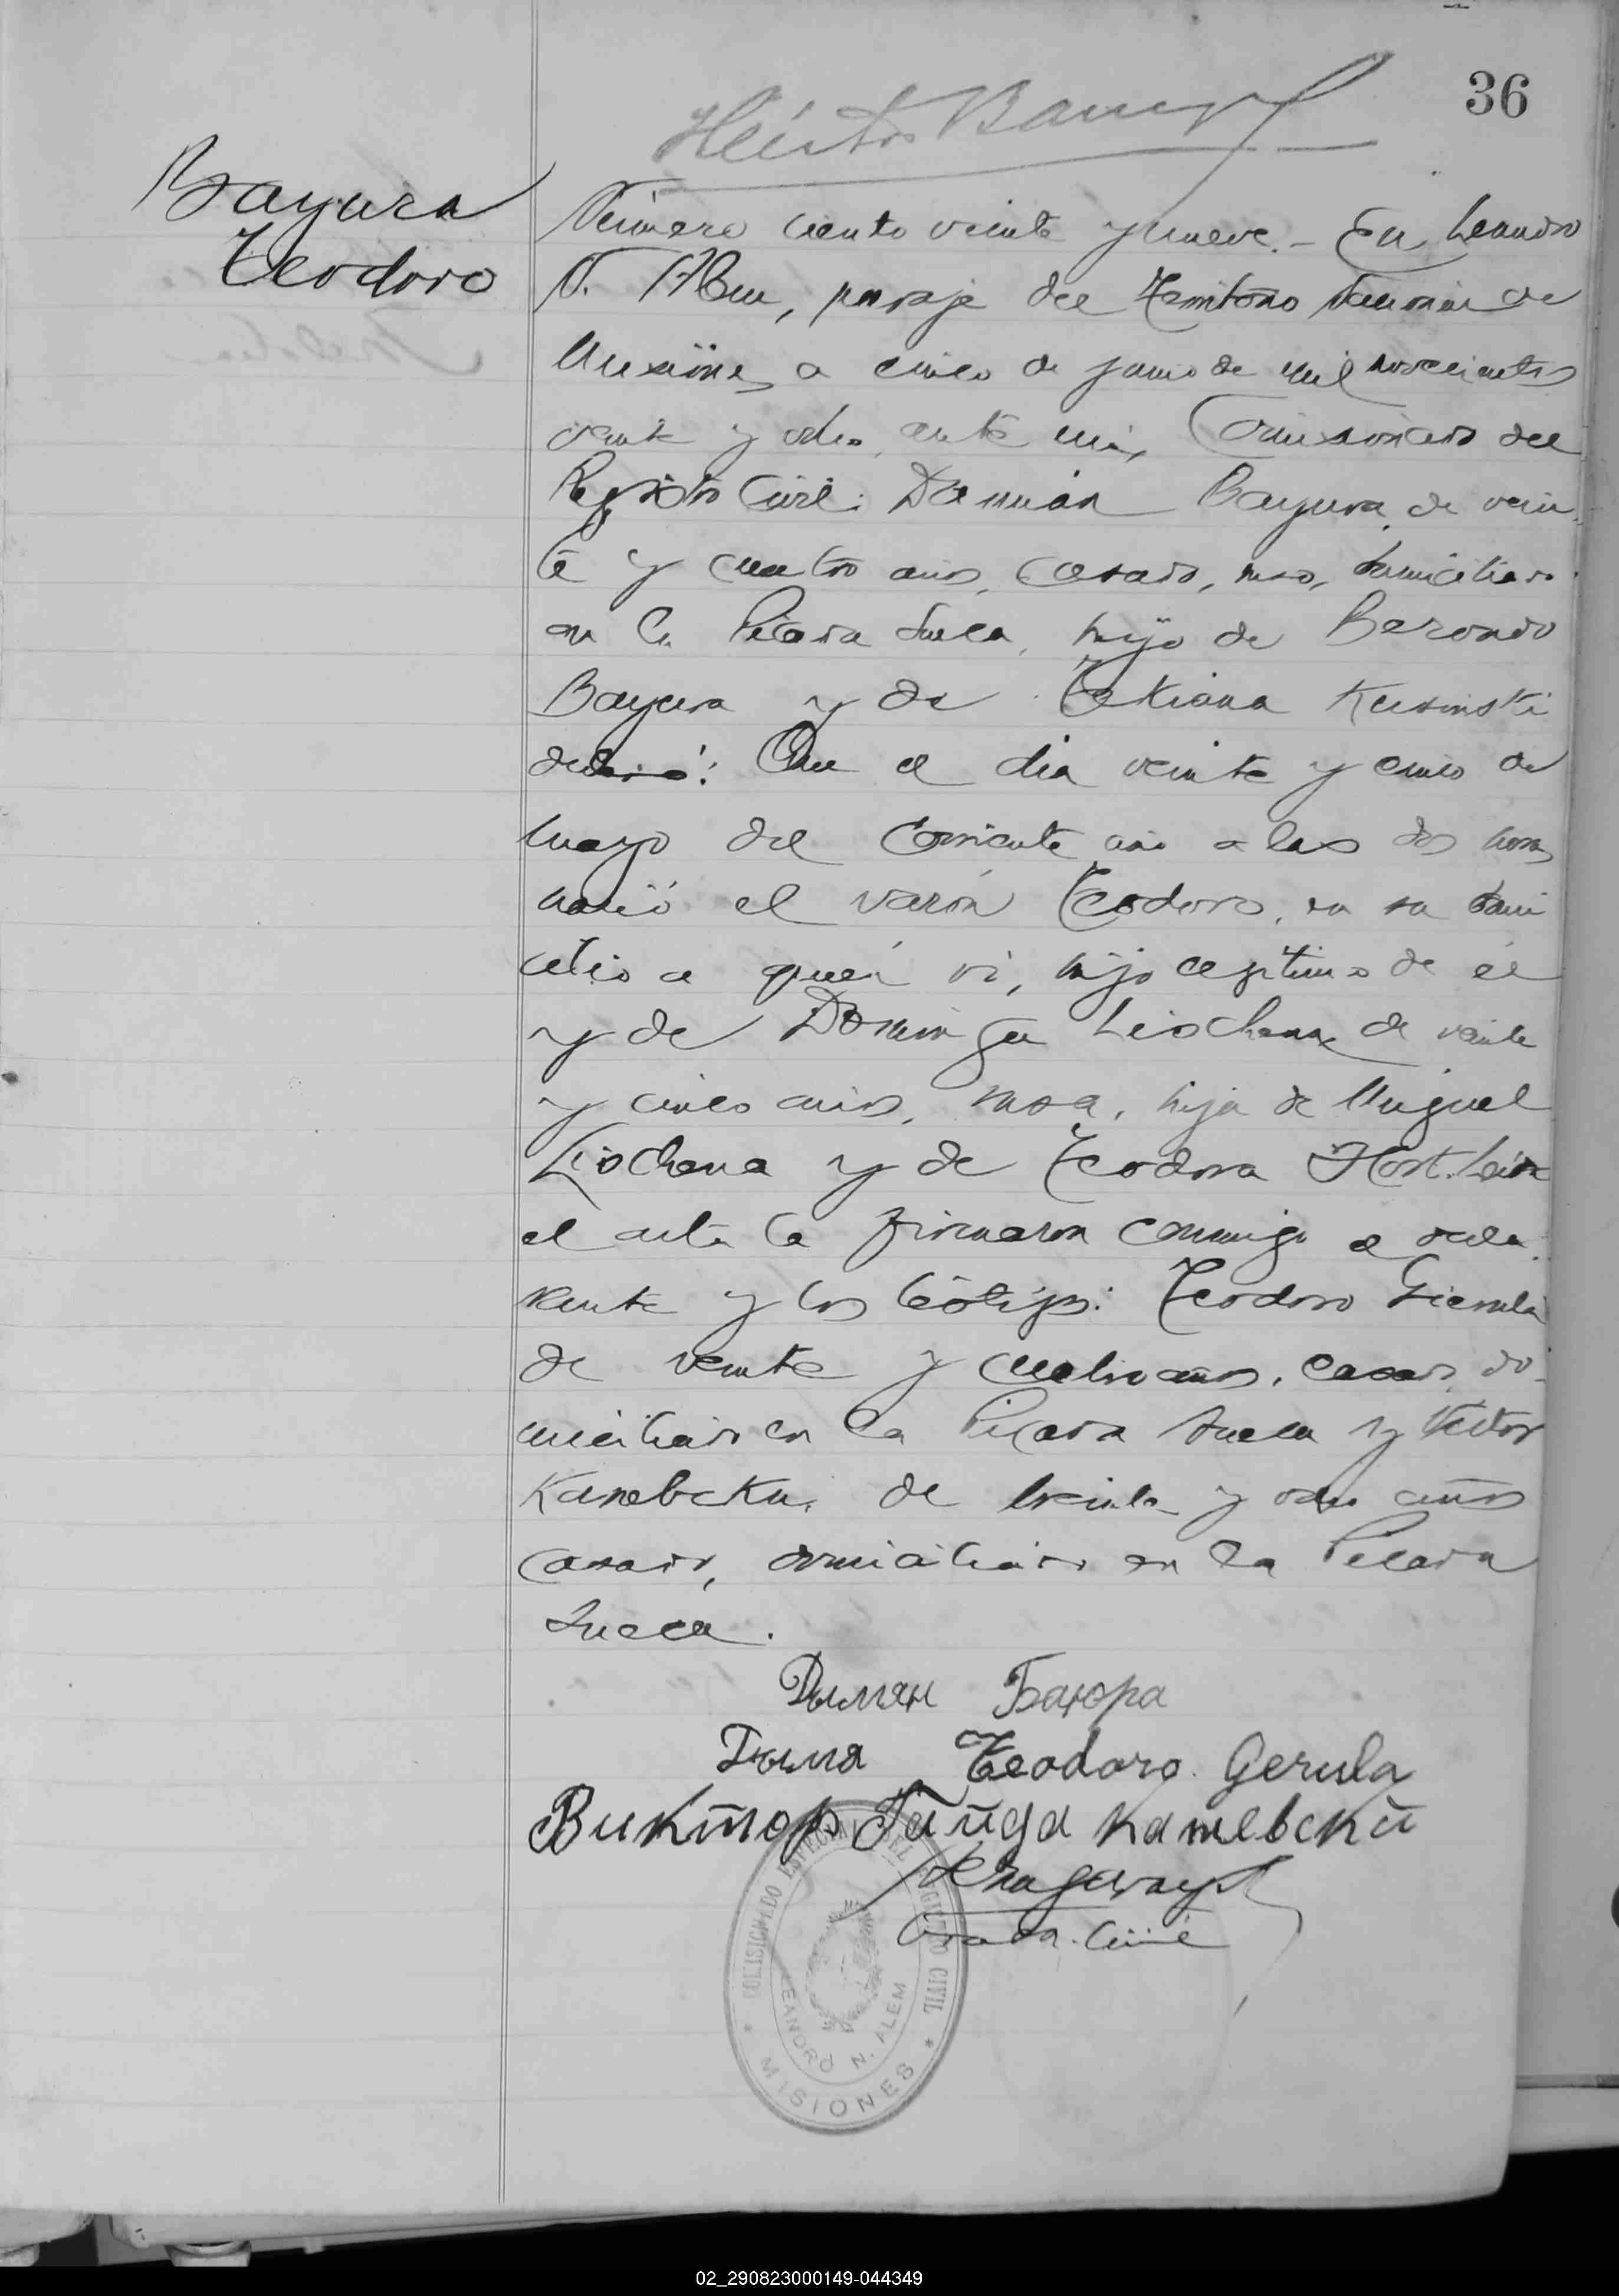 36
Bayura
Teodoro
Número ciento veinte y nueve.- En Leandro
N. Alem, paraje del Territorio Nacional de
Misiones a cinco de junio de mil novecientos
veinte y ocho, ante mi, Comisionado del
Registro Civil: Damián Bayura, de vein
te y cuatro años, casado, ruso, domiciliado
en la Picada Sueca, hijo de
Bayura y de Tekiana Kusinski
declaró: Que el dia veinte y cinco de
mayo del corriente año a las dos horas
nació el varón Teodoro, en su domi
cilio a quien vi, hijo legitimo de él
y de Dominga Liochana de veinte
y cinco años, rusa, hija de Miguel
Liochana y de Teodora Leida
el acta la firmaron conmigo el decla
rante y los testigos: Teodoro
de veinte y cuatro años, casado, do
miciliado en la Picada Sueca y Victor
de treinta y ocho años
casado, domiciliado en la Picada
Sueca.
Дымян Баюра
Teodoro. Gerula
Виктор Каневский
COMISIONADO ESPECIAL DEL REGISTRO CIVIL
LEANDRO N. ALEM
* MISIONES *
02_290823000149-044349